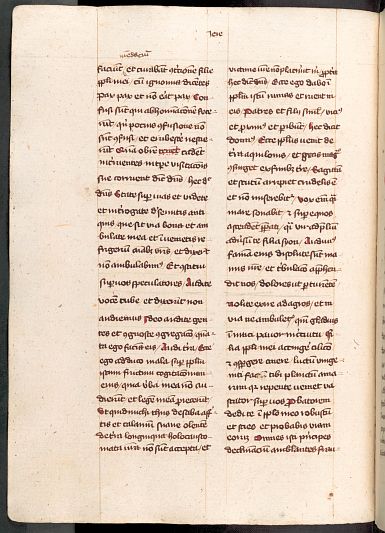 Iere
medicim
faciunt et curabant contritione filie
ppli mei cu ignominia dicetes
Pax pax et no erat pax Con
fusi sut quia abhominacione fece
rut qn potius confusione no
sut confusi et erubesce nescie
rut Qua obrem cadet
inter ruentes in tpe visitacois
sue corruent dic dns hec dt
dns State super vias et videte
et interrogate de semitis anti
quis que sit via bona et am
bulate in ea et inuenietis re
frigeriu aiabz vris et dixerut
no ambulabimus Et constitui
super vos speculatores Audite
voce tube et dixerut non
audiemus Ideo audite gen
tes et cognosce congregacio quan
ta ego facia eis Audi tra Ecce
ego adduco mala super pplm
istum fructum cogitacionum
eius quia verba mea no au
dierut et lege mea proiecerut
Ut quid michi thus de saba affer
tis et calamu suaue olente
de tra longinqua holocausto
mata vra no sut accepta et
victime vre no placuerut m propterea
hec dic dns Ecce ego dabo i
pplm istu ruinas et ruent in
eis Patres et filii simul vicinus
et proximus et peribunt hec dicit
dominus Ecce pplus venit de
tra aquilonis et gens magna
consurget a finibz tre Sagitta
et scutu arripiet crudelis e
et no miserebitur vox eius quasi
mare sonabit et super equos
ascendet preparati quasi vir ad preliu
aduersu te filia sion Audiuimus
fama eius dissolute sut ma
nus nre et tribulacio apprehen
dit nos dolores ut parturiete
Nolite exire ad agros et in
via ne ambuletis qm gladius
inimici pauor in circuitu fi
lia ppli mei accingere cilicio
et conspergere cinere luctu vnige
niti fac tibi planctu ama
rum quia repente veniet va
stator super vos Probatorem
dedi te i pplo meo robustu
et scies et probabis viam
eorum Omnes isti principes
declinanciu ambulantes frau